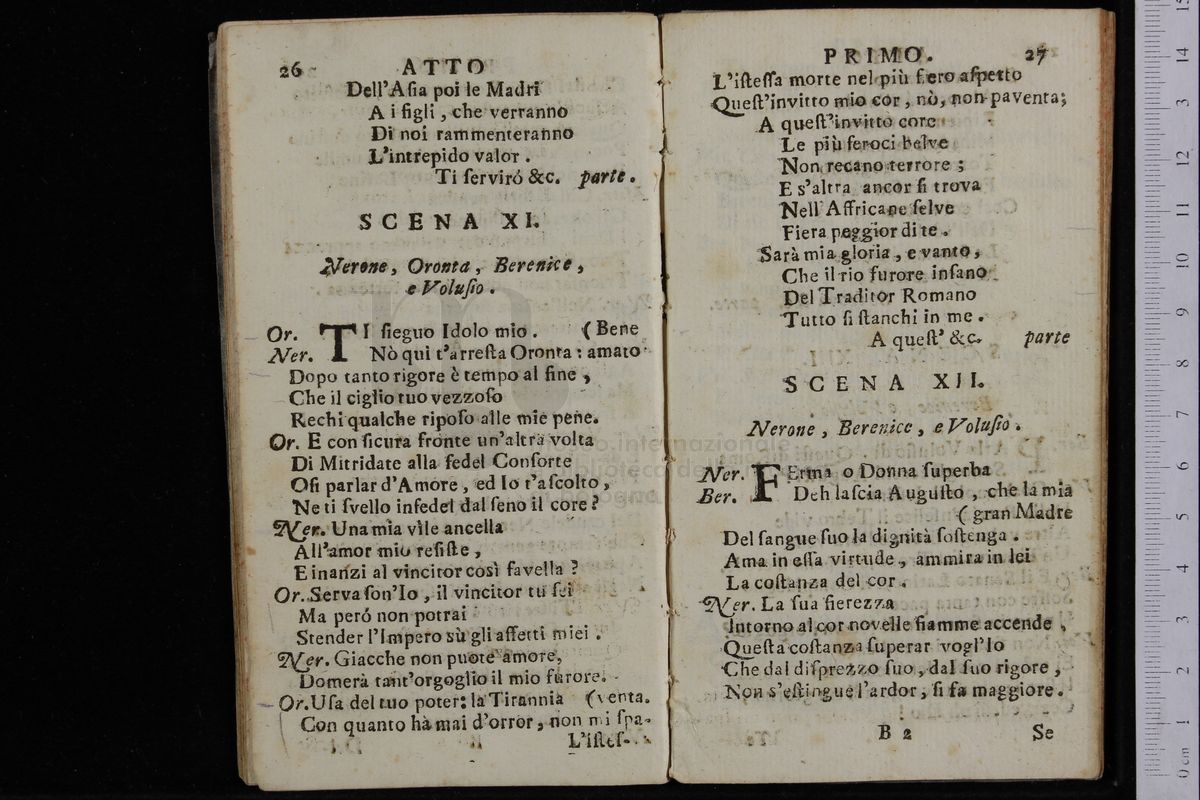 26 ATTO
Dell'Aſia poi le Madri
A i figli, che verranno
Di noi rammenteranno
L'intrepido valor.
Ti ſerviró &c. parte.
SCENA XI.
Nerone, Oronta, Berenice,
e Voluſio.
Or. TI ſieguo Idolo mio. (Bene
Ner. Nò qui t'arreſta Oronta: amato
Dopo tanto rigore è tempo al fine,
Che il ciglio tuo vezzoſo
Rechi qualche ripoſo alle mie pene.
Or. E con ſicura fronte un'altra volta
Di Mitridate alla fedel Conſorte
Oſi parlar d'Amore, ed Io t'aſcolto,
Ne ti ſvello infedel dal ſeno il core?
Ner. Una mia vìle ancella
All'amor mio reſiſte,
E inanzi al vincitor così favella?
Or. Serva ſon'Io, il vincitor tu ſei
Ma peró non potrai
Stender l'Impero sù gli affetti miei.
Ner. Giacche non puote amore,
Domerà tant'orgoglio il mio furore.
Or. Uſa del tuo poter: la Tirannia (venta.
Con quanto hà mai d'orror, non mi ſpa-
L'iſteſ-
PRIMO. 27
L'iſteſſa morte nel più fiero aſpetto
Queſt'invitto mio cor, nò, non paventa;
A queſt'invitto core
Le più feroci belve
Non recano terrore;
E s'altra ancor ſi trova
Nell'Affricane ſelve
Fiera peggior di te.
Sarà mia gloria, e vanto,
Che il rio furore inſano
Del Traditor Romano
Tutto ſi ſtanchi in me.
A queſt' &c. parte
SCENA XII.
Nerone, Berenice, e Voluſio.
Ner. FErma o Donna ſuperba
Ber. Deh laſcia Auguſto, che la mia
(gran Madre
Del ſangue ſuo la dignità ſoſtenga.
Ama in eſſa virtude, ammira in lei
La coſtanza del cor.
Ner. La ſua fierezza
Intorno al cor novelle fiamme accende,
Queſta coſtanza ſuperar vogl'Io
Che dal diſprezzo ſuo, dal ſuo rigore,
Non s'eſtingue l'ardor, ſi fa maggiore.
B 2 Se